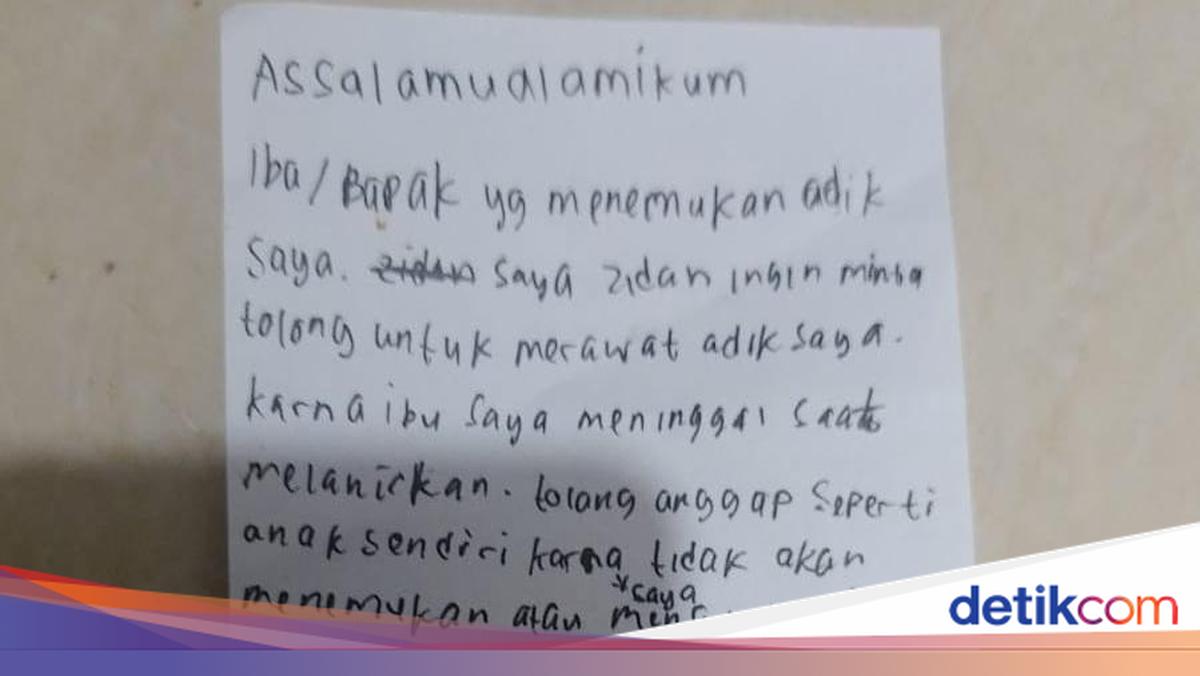 Assalamualamikum
Iba/Bapak yg menemukan adik
saya. zidan saya zidan ingin minta
tolong untuk merawat adik saya.
karna ibu saya meninggal saat
melanirkan. tolang anggap seperti
anak sendiri karna tidak akan
*saya
menemukan atau
detikcom